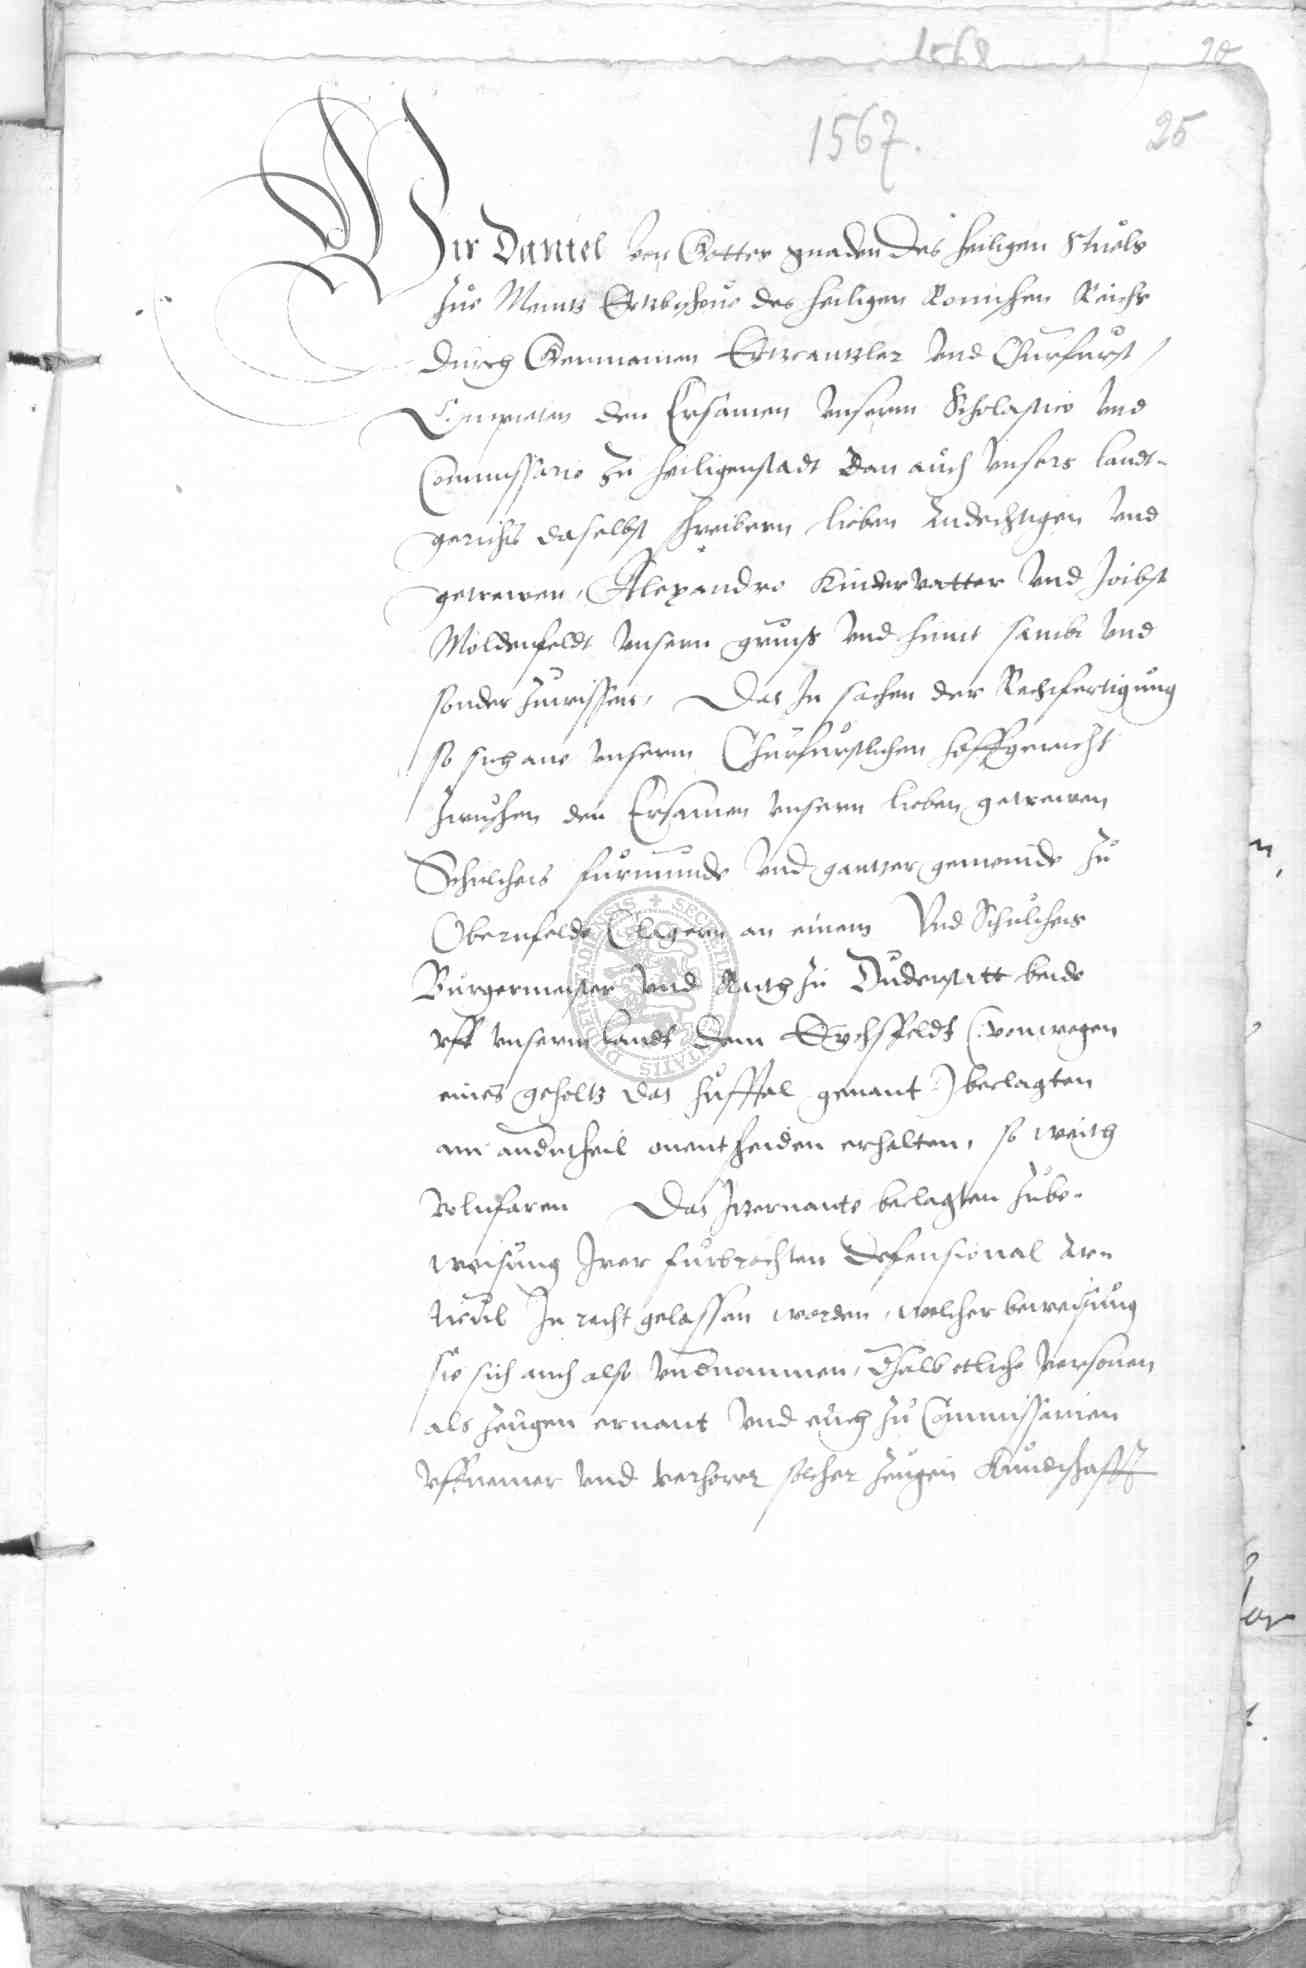 1568
20
1567.
25
Wir Daniel von Gottes gnaden des heiligen Stuels
zue Meintz Ertzbischove des heiligen Romischen Reichs
durch Germanien Ertzcantzler und Churfurst,
Empieten den Ersamen unserm Scholastico und
Commissario zu Heiligenstadt Dan auch unsers landt-
gerichts daselbst schreibern lieben Andechtigen und
getrewen, Alexandro Kindervatter und Joibst
Moldenfeldt unsern grues und hiemit sambt und
sonder zuwissen, Das In sachen der Rechtfertigung
so sich ane unserm Churfurstlichen hoffgericht
zwischen den Ersamen unsern lieben getrewen
Schulcheis furmunde und gantzer gemeinde zu
Obernfelde Clagern an einem Und Schulcheis
Burgermeister und Rath zu Duderstatt beide
uff unserm landt dem Eychsfeldt (: vonwegen
eines geholtz das huffhal genant :) beclagten
am andertheil onentscheiden erhalten, so weith
volnfaren Das Itzernante beclagten zube-
weisung Irer furbrachten defensional Ar-
ticul In recht gelassen worden, welcher beweisung
sie sich auch also undernommen, Deshalb etliche personen
als zeugen ernant und euch zu Commissarien
uffnemer und verhorer solcher zeugen Kundtschafft
PIDI DURSTADIENSIS + SECRETUM CIVITATIS